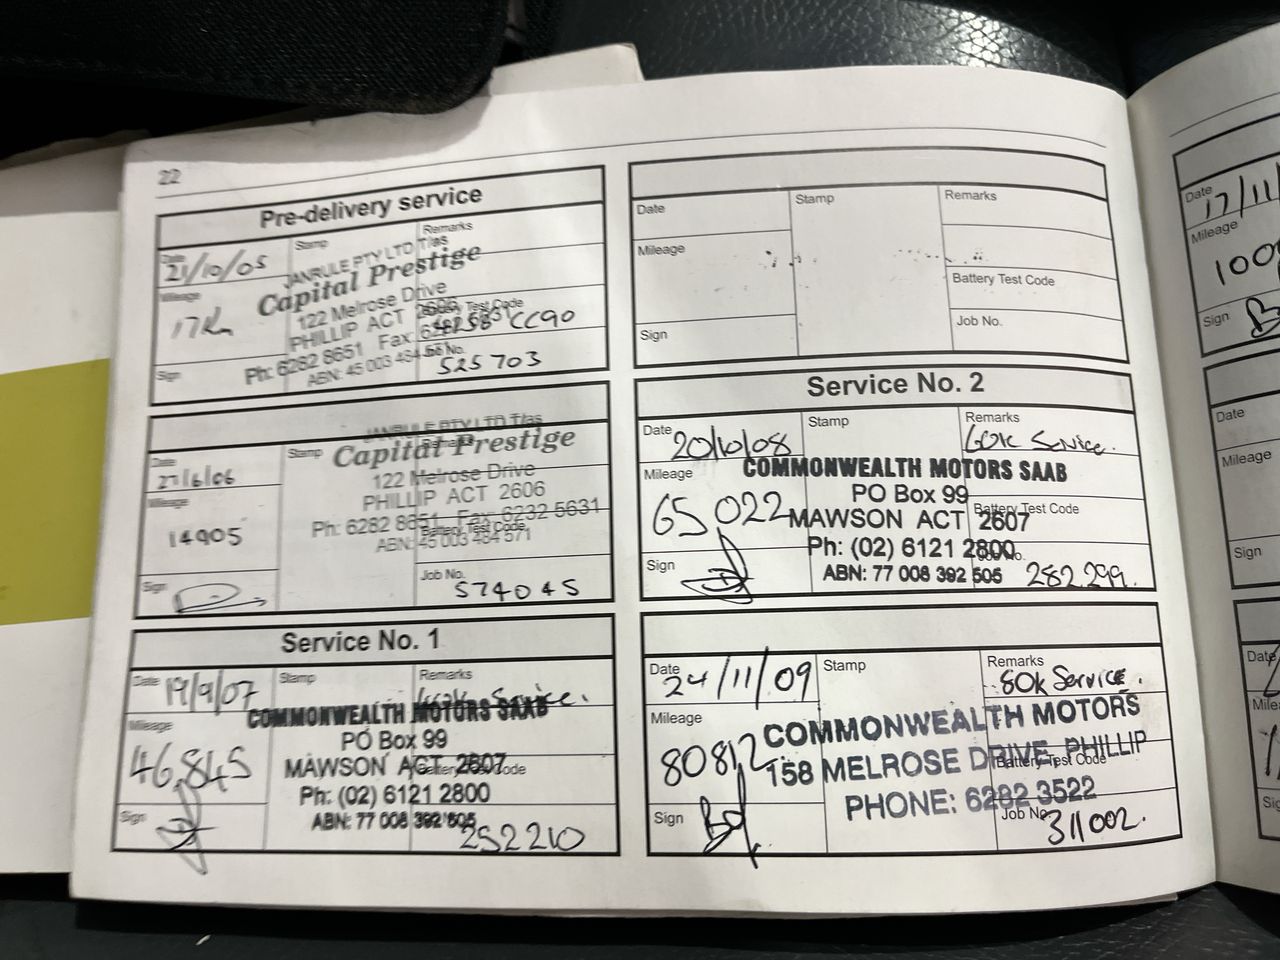 22
Pre-delivery service
Date
21/10/05
Stamp
Remarks
JANRULE PTY LTD T/as
Capital Prestige
122 Melrose Drive
PHILLIP ACT 2606
Ph: 6282 8651 Fax: 6232 5631
ABN: 45 003 484 571
Mileage
Battery Test Code
CC90
Sign
Job No.
525703
Date
Stamp
Remarks
JANRULE PTY LTD T/as
Capital Prestige
122 Melrose Drive
PHILLIP ACT 2606
Ph: 6282 8651 Fax: 6232 5631
ABN: 45 003 484 571
Mileage
14905
Battery Test Code
Sign
Job No.
574045
Service No. 1
Date
19/9/07
Stamp
Remarks
Service.
COMMONWEALTH MOTORS SAAB
PO Box 99
MAWSON ACT 2607
Ph: (02) 6121 2800
ABN: 77 008 392 505
Mileage
46,845
Battery Test Code
Sign
252210
Date
Stamp
Remarks
Mileage
Battery Test Code
Sign
Job No.
Service No. 2
Date
20/10/08
Stamp
Remarks
60K Service.
COMMONWEALTH MOTORS SAAB
PO Box 99
MAWSON ACT 2607
Ph: (02) 6121 2800
ABN: 77 008 392 505
Mileage
65022
Battery Test Code
Sign
Job No.
282299.
Date
24/11/09
Stamp
Remarks
80k Service.
COMMONWEALTH MOTORS
158 MELROSE DRIVE, PHILLIP
PHONE: 6282 3522
Mileage
80812
Battery Test Code
Sign
Job No.
311002.
Date
17/11
Mileage
100
Sign
Date
Mileage
Sign
Date